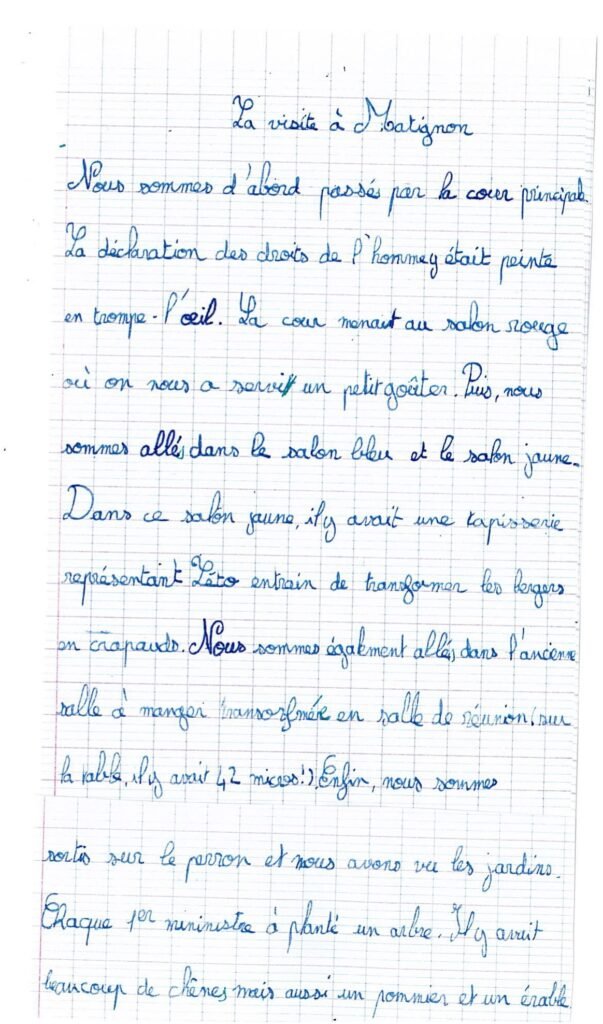 La visite à Matignon
Nous sommes d'abord passés par la cour principal.
La déclaration des droits de l'hommey était peinte
en trompe-l'œil. La cour menait au salon rouge
où on nous a servi un petit goûter. Puis, nous
sommes allés dans le salon bleu et le salon jaune.
Dans ce salon jaune, il y avait une tapisserie
représentant Léto entrain de transformer les bergers
en crapauds. Nous sommes également allés dans l'ancienne
salle à manger transorfmée en salle de réunion (sur
la table, il y avait 42 micros!). Enfin, nous sommes
sortis sur le perron et nous avons vu les jardins.
Chaque 1er mininistre à planté un arbre. Il y avait
beaucoup de chênes mais aussi un pommier et un érable.